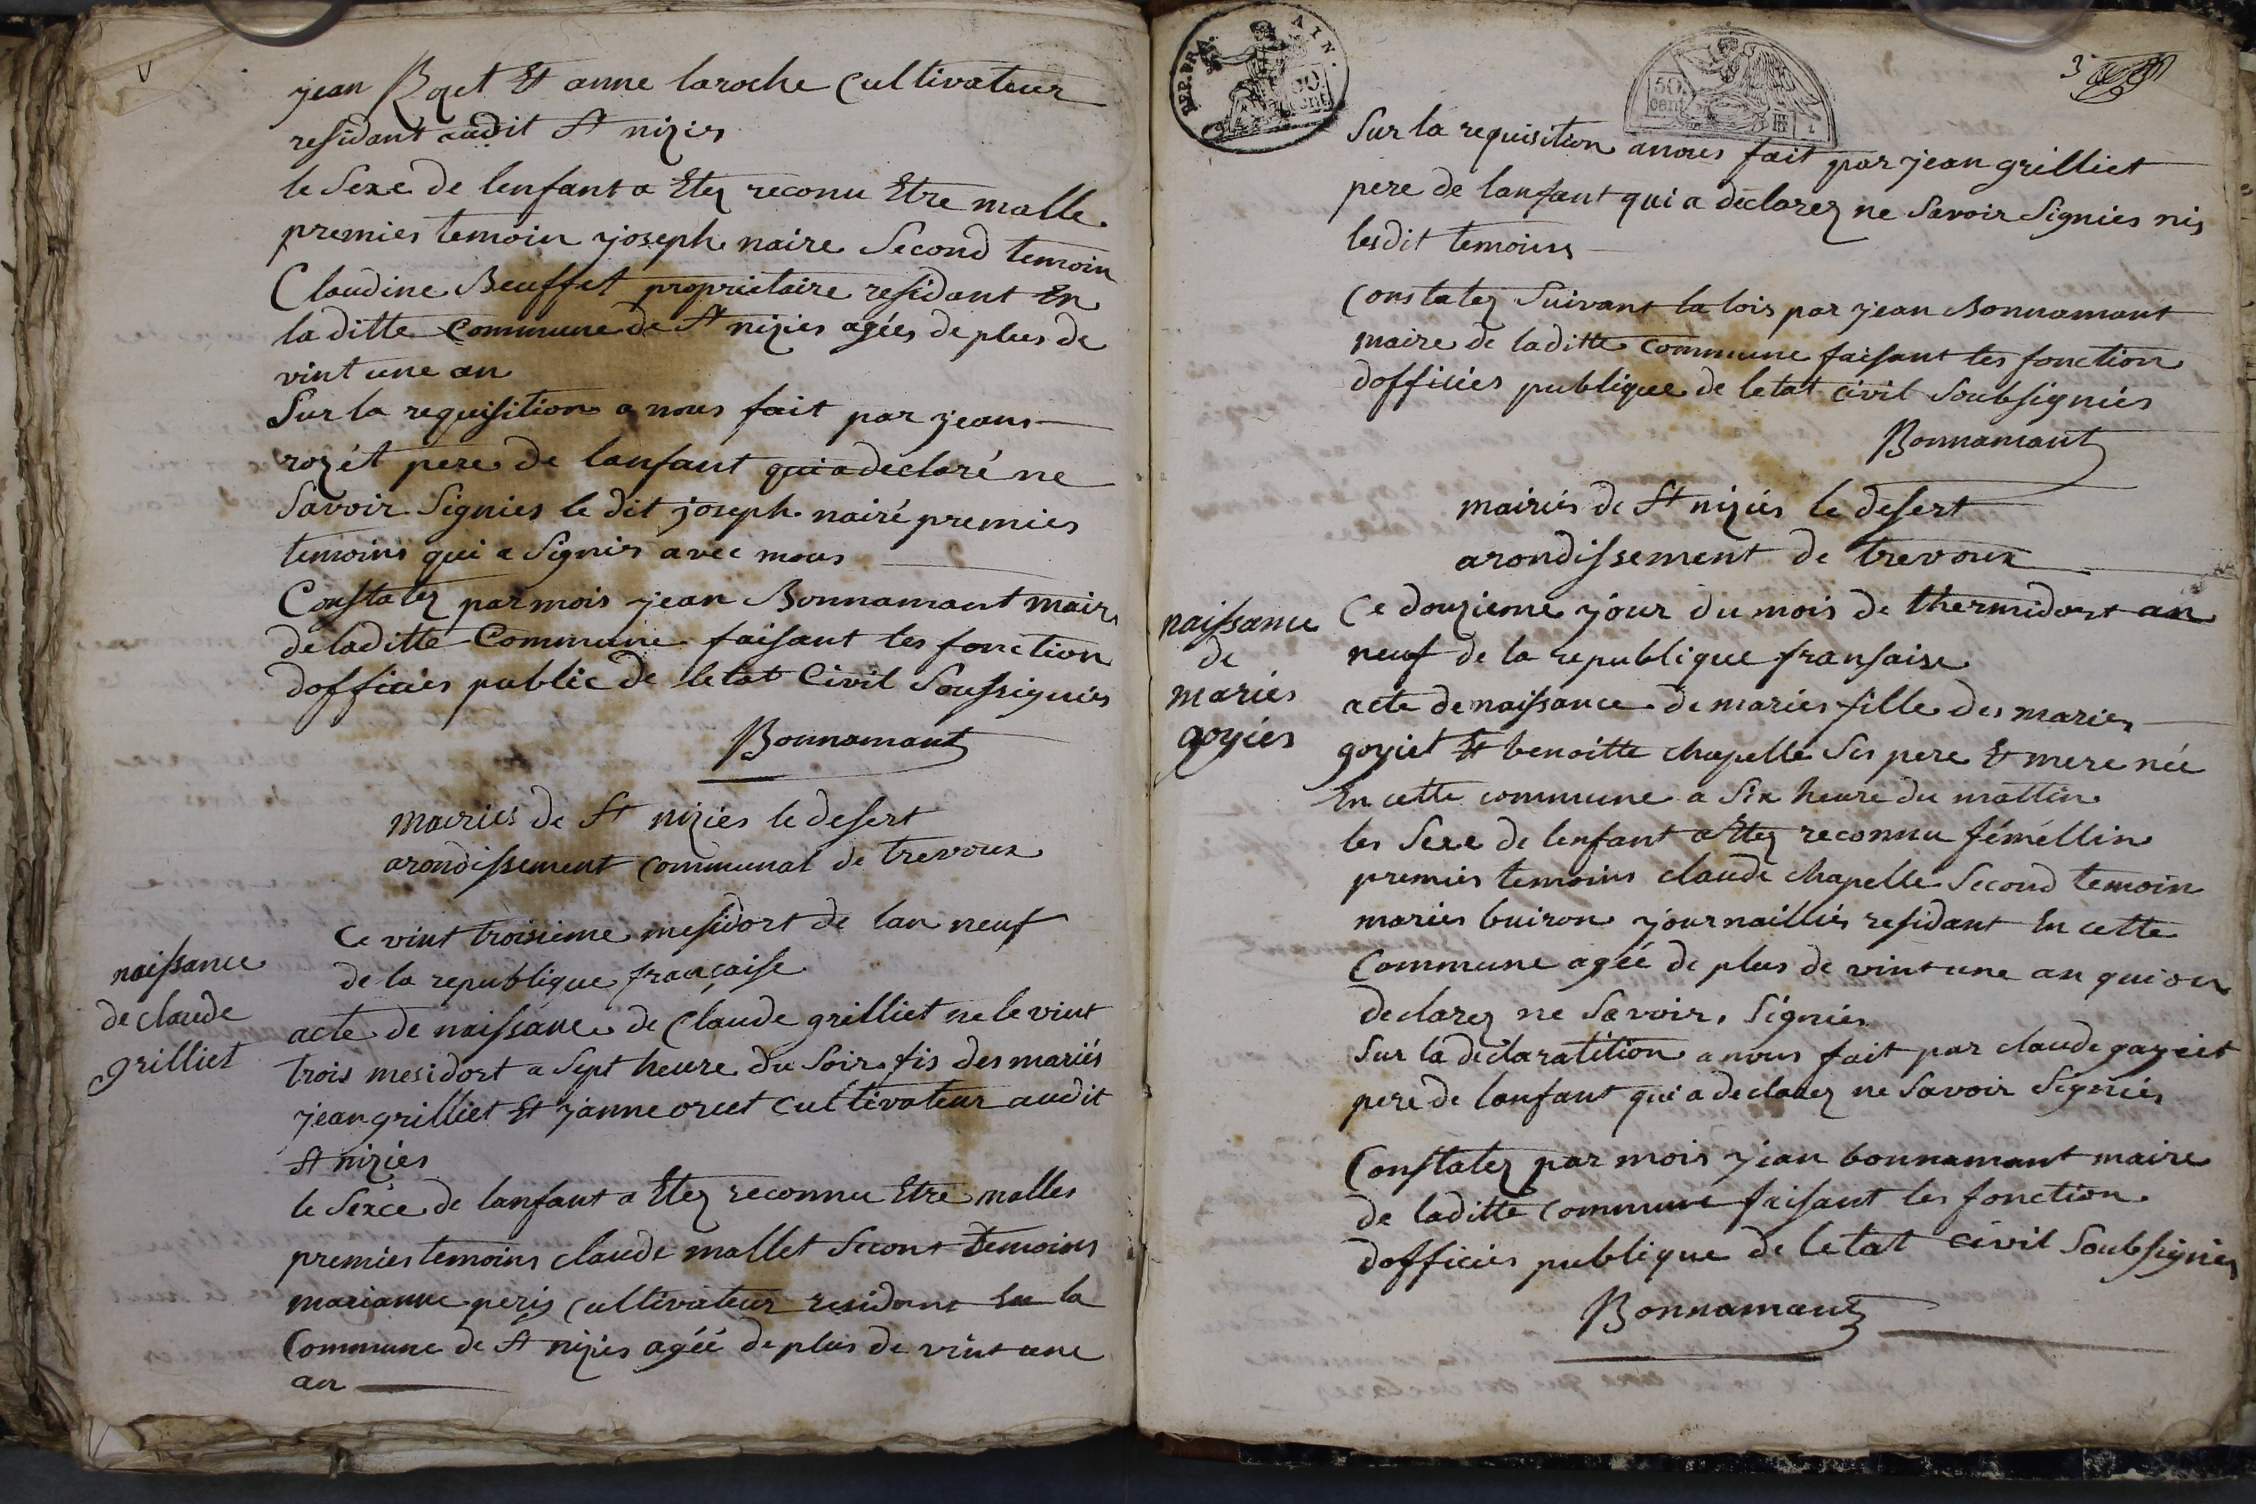 jean Rozet Et anne laroche Cultivateur
residant audit St nizies
le Sexe de lenfant a Etez reconu Etre malle
premies temoin joseph naire Second temoin
Claudine Beuffet proprietaire residant En
la ditte Commune de St nizies agées de plus de
vint une an
Sur la requisition a nous fait par jean
rozét pere de lanfant qui a declaré ne
Savoir Signies le dit joseph nairé premies
temoins qui a Signies avec nous
Constatez par mois jean Bonnamant maire
de laditte Commune faisant les fonction
dofficies public de letat Civil Soussignies
Bonnamant
Mairies de St nizies le desert
arondissement Communal de trevoux
naissance
de claude
grilliet
Ce vint troisieme mesidort de lan neuf
de la republique française
acte de naissance de Claude grilliet ne le vint
trois mesidort a Sept heure du Soir fis des mariés
jean grilliet Et janne orcet Cultivateur audit
St nizies
le Sexce de lanfant a Etez reconnu Etre malles
premies temoins claude mallet Secont temoins
marianne peris Cultivateur residant En la
Commune de St nizies agéé de plus de vint une
an
DEP. FRA. AIN.
50 cent
50. cent
3
Sur la requisition a nous fait par jean grilliet
pere de lanfant qui a déclarez ne Savoir Signies nis
lesdit temoins
Constatez Suivant la lois par jean Bonnamant
maire de laditte Commune faisant les fonction
dofficies publique de letat civil Soubsignies
Bonnamant
mairies de St nizies le desert
arondissement de trevoux
naissance
de
maries
goyiés
Ce douzieme jour du mois de thermidort an
neuf de la republique fransaise
acte de naissance de maries fille des maries
goyiet Et benoitte chapelle Ses pere Et mere née
En cette commune a Six heure du mattin
les Sexe de lenfant a Etez reconnu féméllin
premies temoins claude chapelle Second temoin
maries buiron journailliés residant En cette
Commune agéé de plus de vint une an qui on
declarez ne Savoir Signiés
Sur la déclaratition a nous fait par claude gayeit
pere de lanfant qui a declarez ne Savoir Signiés
Constatez par mois jean bonnamant maire
de laditte commune faisant les fonction
dofficies publique de letat civil Soubsignies
Bonnamant